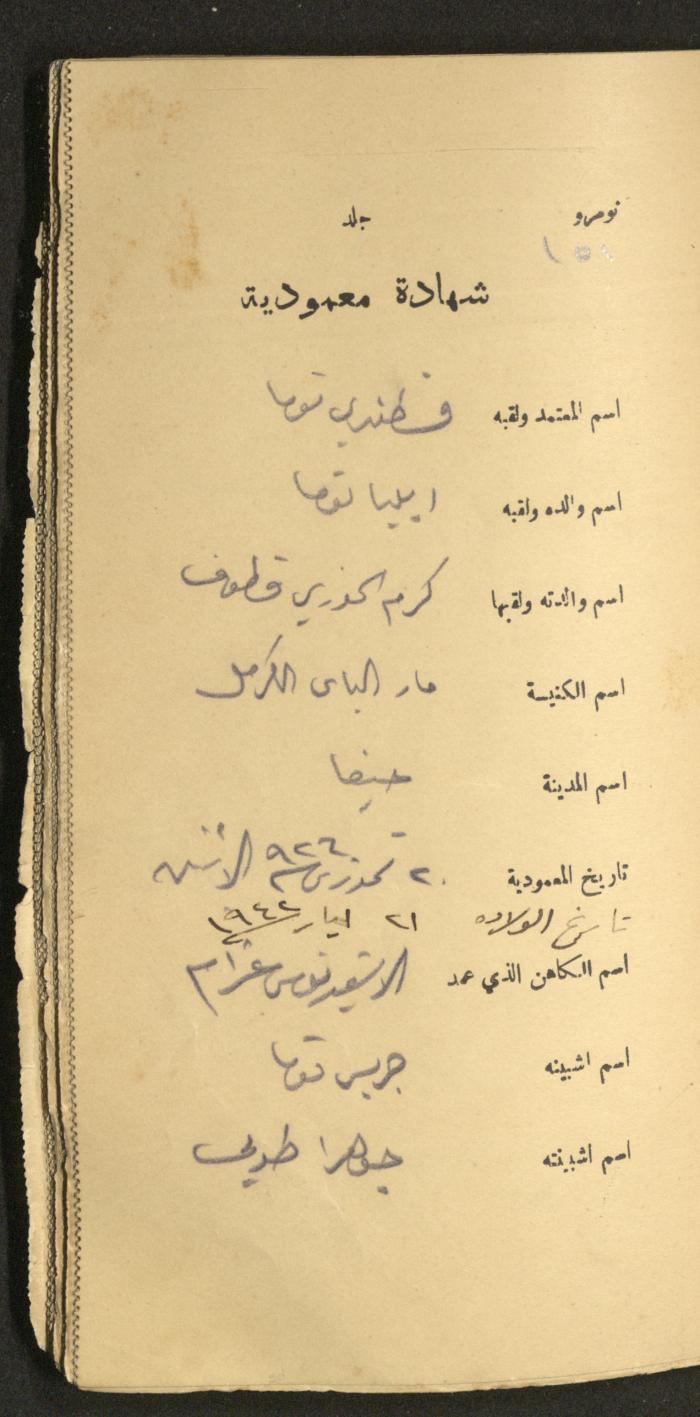 نومرو جلد
شهادة معمودية
اسم المعتمد ولقبه قسطندي توما
اسم والده ولقبه ايليا توما
اسم والدته ولقبها كرم الخوري قطوف
اسم الكنيسة مار الياس الكرمل
اسم المدينة حيفا
تاريخ المعمودية ٢٠ تموز ٩٢٦ الاثنين
تاريخ الولاده ٢١ ايار
اسم الكاهن الذي عمد
اسم اشبينه جريس توما
اسم اشبينته جوهرا طوبي